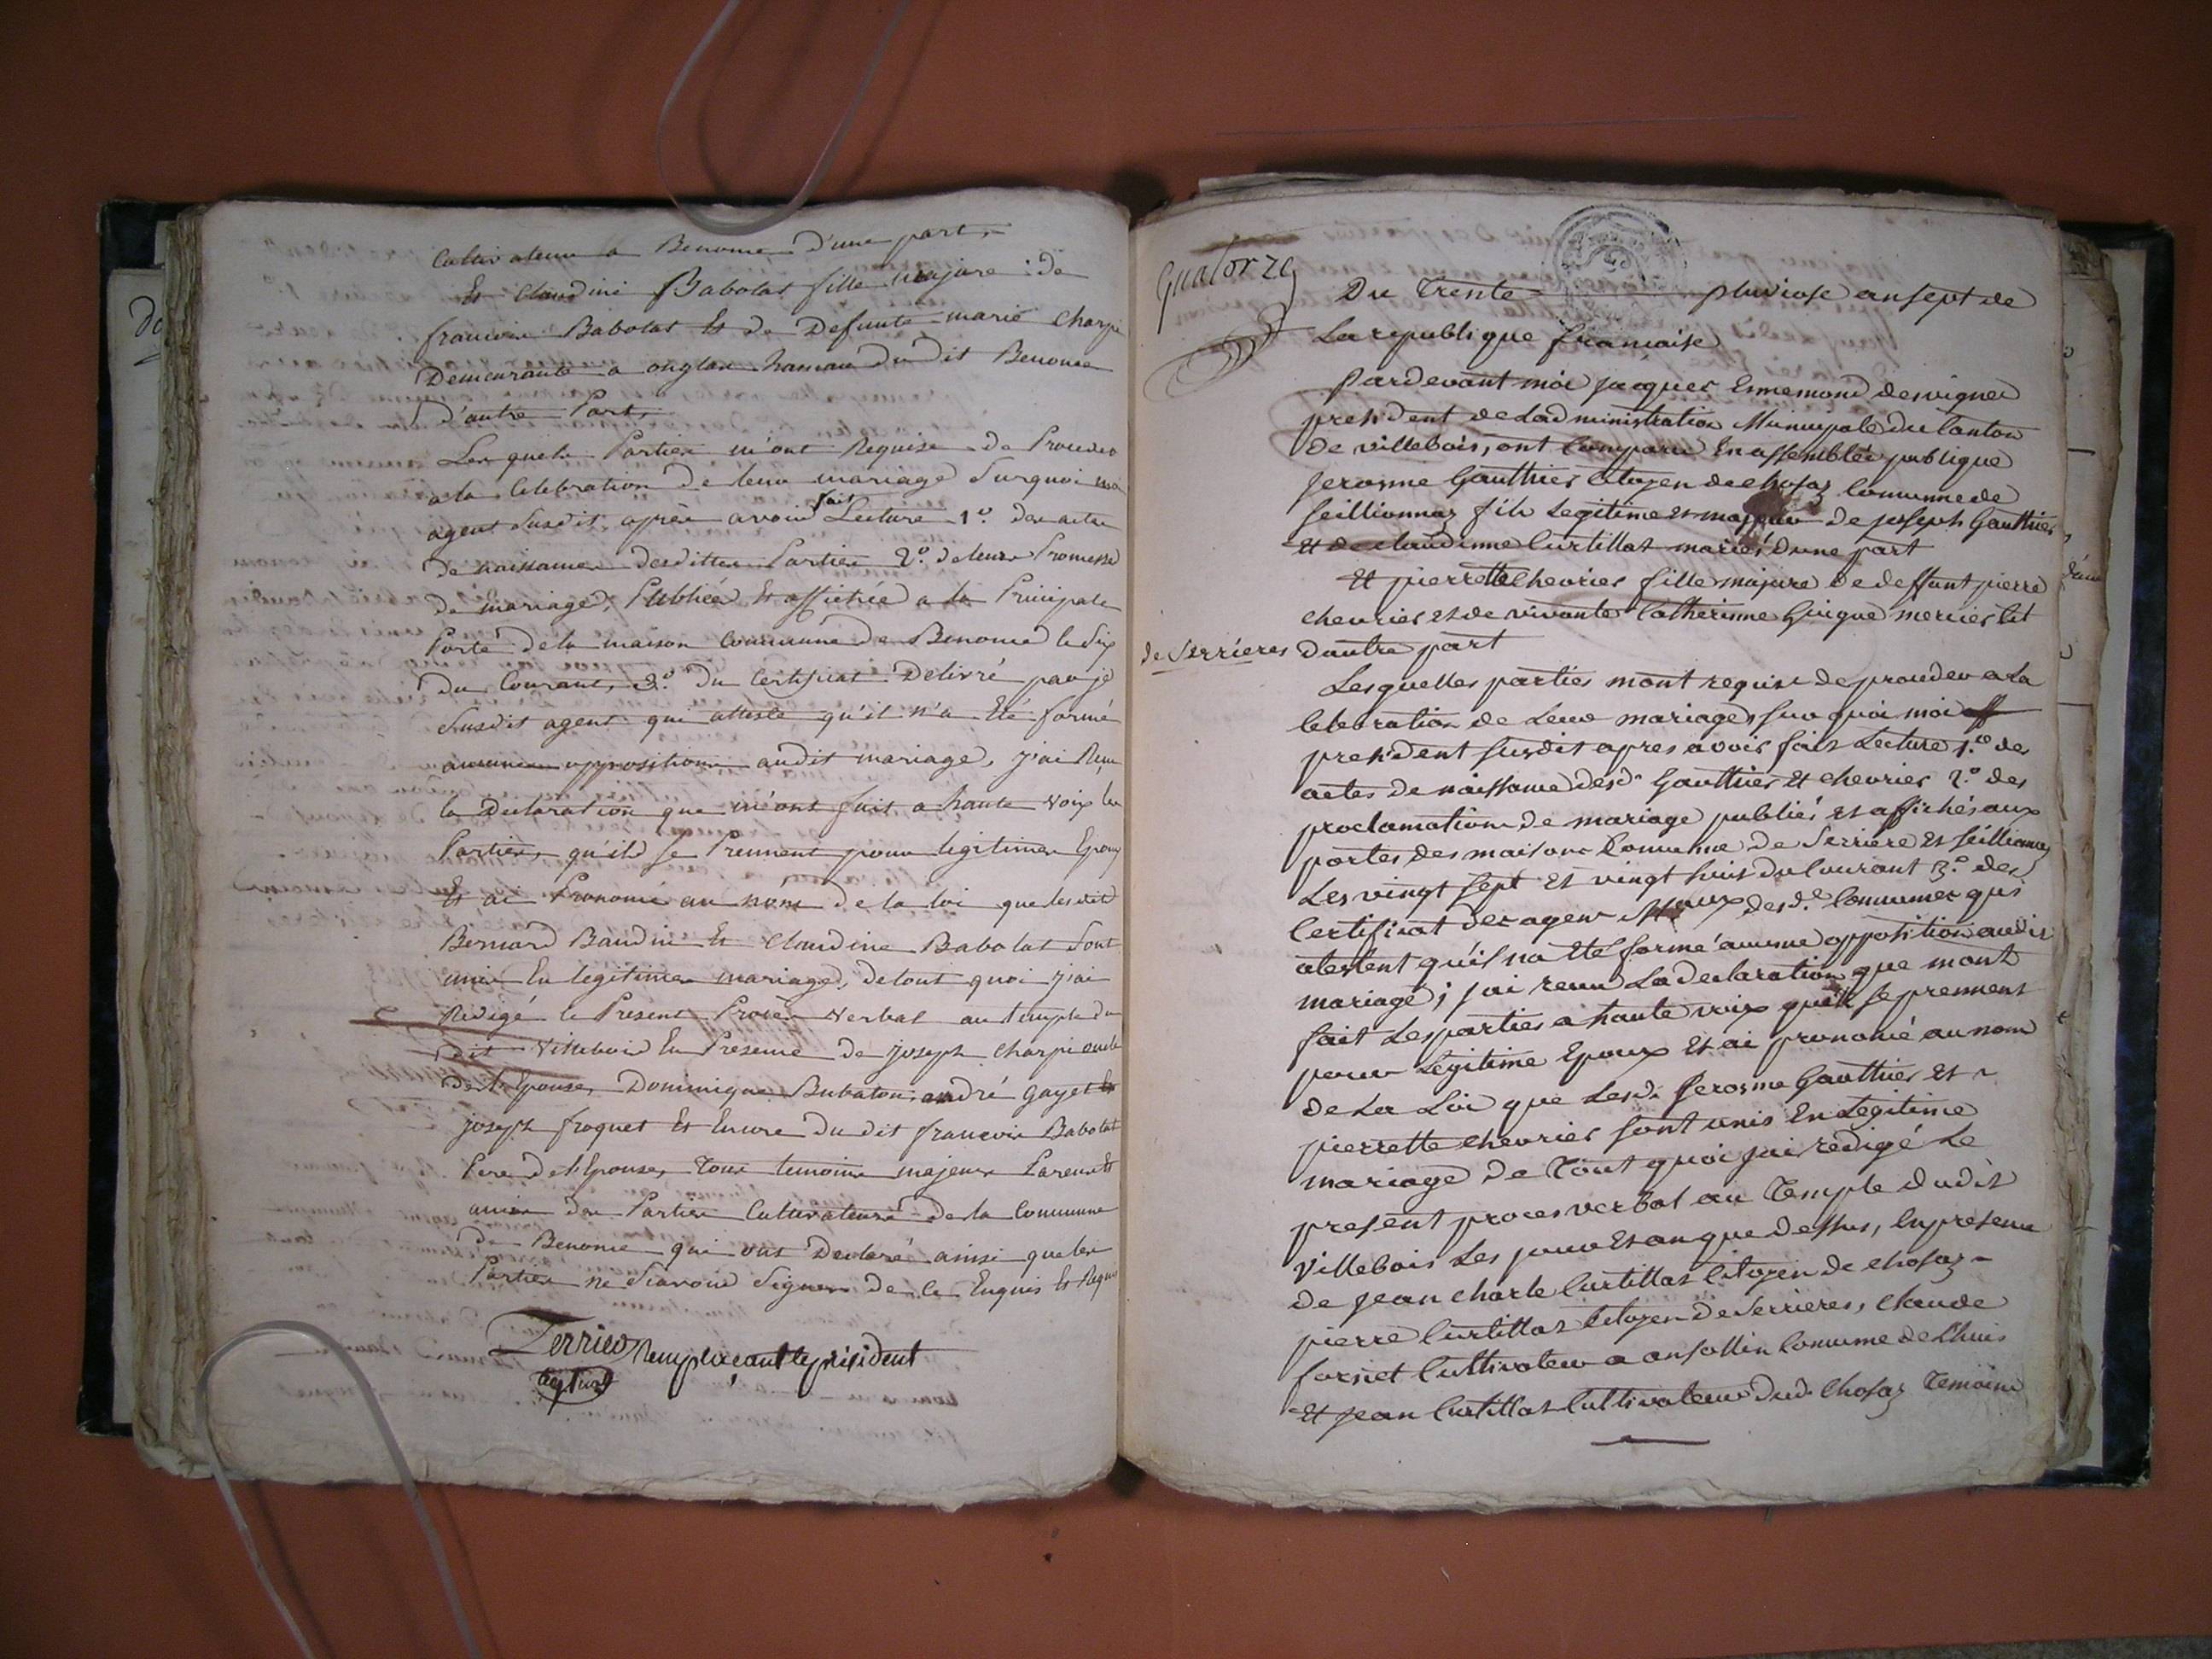 Cultivateur a Benonce d'une part,
Et Claudine Babolat fille majure de
francois Babolat Et de Defunte marie Charpi
Demeurante a onglas hamau du dit Benonce
d'autre Part,
Les quels Parties m'ont Requise de Proceder
a la Celebration de leur mariage Surquoi moi
agent Susdit après avoir fait Lecture 1º. des actes
de naissances desdittes Parties 2º. de leurs Promesse
de mariage, Publiée Et affichée a la Principale
Porte de la maison Commune de Benonce le Six
du Courant, 3º. du Certificat Delivré par je
Susdit agent qui atteste qu'il n'a Eté formé
aucune opposition audit mariage, j'ai Reçu
la Declaration que m'ont fait a haute voix les
Parties, qu'ils se Prennent pour legitimes Epoux
Et ai Prononcé au nom de la loi que lesdit
Bernard Baudin Et Claudine Babolat Sont
unis En legitimes mariage, de tout quoi j'ai
Redigé le Present Procès verbal au temple du
dit Villebois En Presence de joseph Charpi oncle
de l'Epouse, Dominique Bubaton, andré Gayet Et
joseph froquet Et Encore du dit francois Babolat
Pere de l'Epouse, Tous temoins majeurs Parens Et
amis des Parties Cultivateurs de la Commune
de Benonce qui ont Declaré ainsi que les
Parties ne Scavoir Signer de ce Enquis Et Requis
Perrier Remplaçant le président
agent
Quatorze
Du Trente pluviose an sept de
La republique francaise
Pardevant moi jacques Ennemond desvignes
president de Ladministration Municipale du Canton
de villebois, ont Comparu En assemblée publique
Jerosme Gauthier Citoyen de chosaz Commune de
Seillionnaz fils Legitime et majeur de joseph Gauthier
Et de claudinne Curtillat mariés d'une part
Et pierrette chevrier fille majure de deffunt pierre
chevrier et de vivante Catherinne Guigue mercier lit
de Serrières
dautre part
Lesquelles parties mont requise de proceder a La
Celebration de Leur mariage, sur quoi moi
president susdit apres avoir fait Lecture 1º. des
actes de naissance desd. Gauthier Et chevrier 2º. des
proclamations de mariage publiés et affichés aux
portes des maisons Commune de Serriere et seillionaz
Les vingt sept Et vingt huit du Courant 3º. des
Certificat des agens desd. Communes qui
atestent qu'il na Eté formé aucune opposition audit
mariage; j'ai recu La declaration que mont
fait Les parties a haute voix qu'ils se prennent
pour Legitime Epoux Et ai prononcé au nom
de La Loi que Lesd. Jerosme Gauthier Et
pierrette chevrier sont unis En Legitime
mariage de Tout quoi jai rédigé Le
present proces verbal au Temple dudit
Villebois Les jour Et an que dessus, En presence
de jean charle Curtillat Citoyen de chosaz
pierre Curtillat Citoyen de Serrieres, claude
fornet Cultivateur a ansollin Commune de Lhuis
Et jean Curtillat Cultivateur dud. Chosaz Temoins